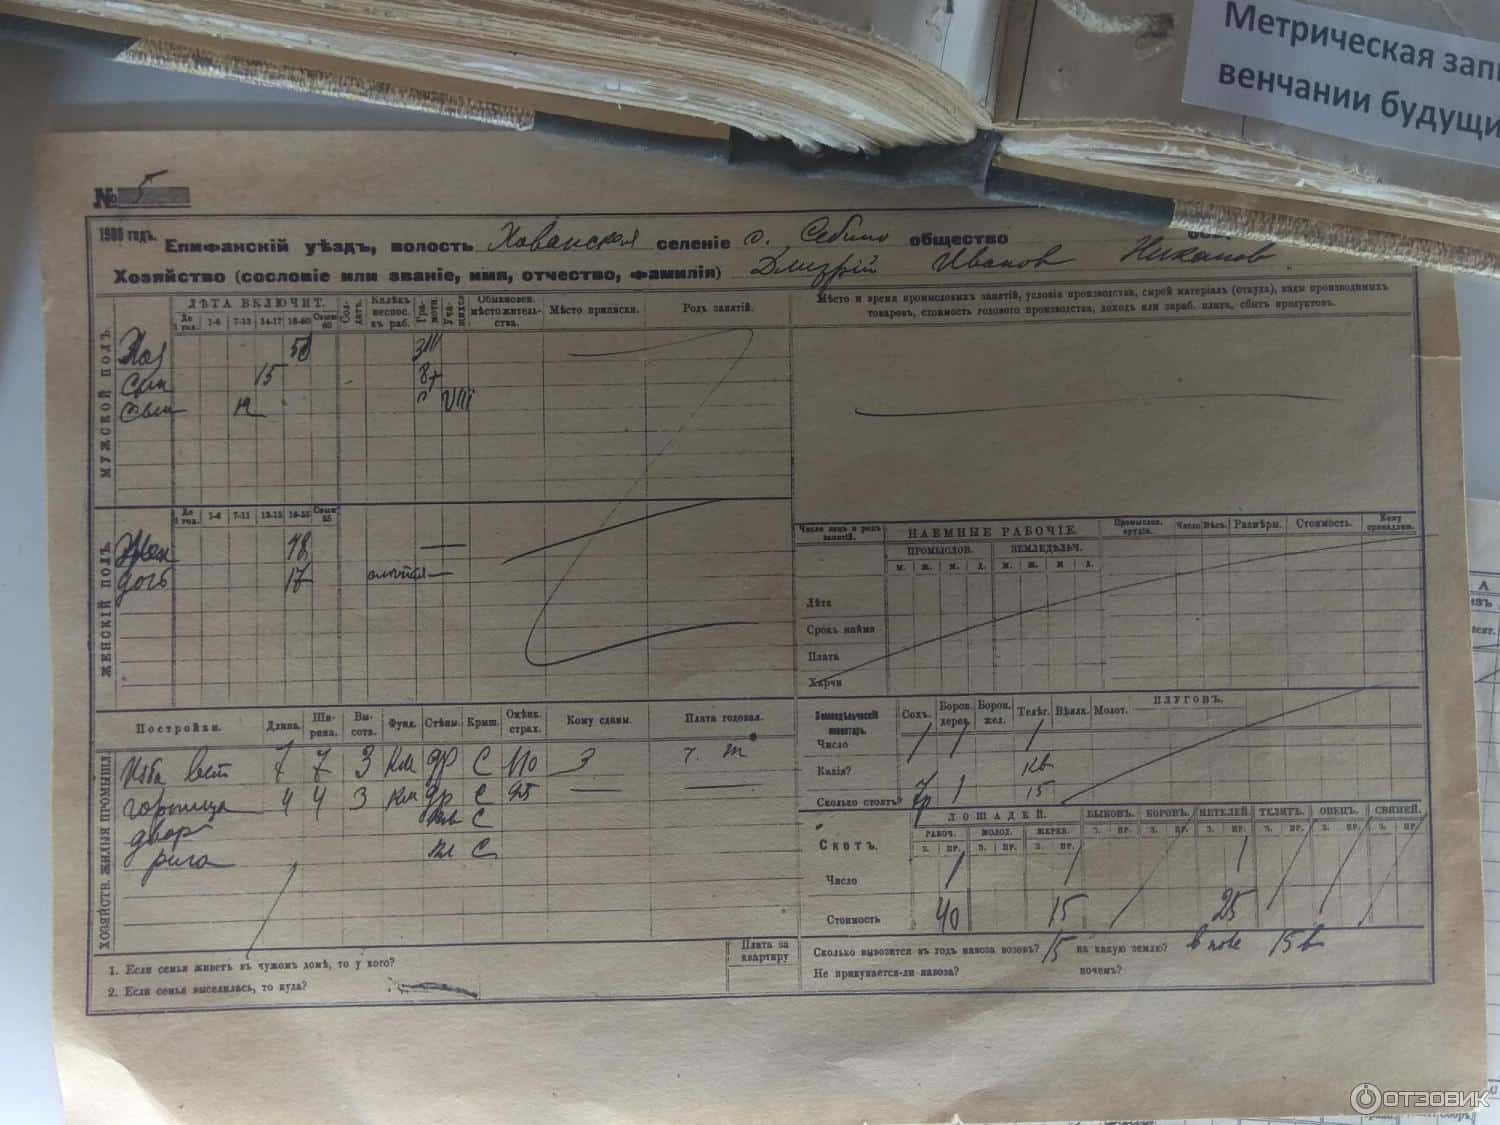 Метрическая запи
венчании будущи
№ 5
1900 годъ.
Епифанскій уѣздъ, волость Хованская селеніе с. Себино общество
Хозяйство (сословіе или званіе, имя, отчество, фамилія) Дмитрій Иванов Никонов
МУЖСКОЙ ПОЛЪ.
ЛѢТА ВКЛЮЧИТ.
До 1 год. 1-6 7-13 14-17 18-60 Свыше 60
Солдатъ.
Калѣк. неспос. къ раб.
Грамотн.
Учащихся
Обыкновен. мѣстожительства.
Мѣсто приписки.
Родъ занятій.
Мѣсто и время промысловыхъ занятій, условія производства, сырой матеріалъ (откуда), виды производимыхъ
товаровъ, стоимость годового производства, доходъ или зараб. плата, сбытъ продуктовъ.
Хоз
Сын 15
Сын 12 VIII
ЖЕНСКІЙ ПОЛЪ.
До 1 год. 1-6 7-11 12-15 16-55 Свыше 55
Жен 48
дочь 17
Число лицъ и родъ занятій.
НАЕМНЫЕ РАБОЧІЕ.
ПРОМЫСЛОВ. ЗЕМЛЕДѢЛЬЧ.
м. ж. м. д. м. ж. м д.
Промыслов. орудія. Число Вѣсъ. Размѣры. Стоимость. Кому принадлеж.
Лѣта
Срокъ найма
Плата
Харчи
ХОЗЯЙСТВ. ЖИЛЫЯ ПРОМЫШЛ.
Постройки. Длина. Ширина. Высота. Фунд. Стѣны. Крыш. Оцѣнк. страх. Кому сданы. Плата годовая.
Изба 7 7 3 Км др С 110 З
горница 4 4 3 Км др С
двор С
рига пл С
Земледѣльческій инвентарь. Сохъ. Борон. дерев. Борон. жел. Телѣг. Вѣялк. Молот. ПЛУГОВЪ.
Число 1 1 1
Какія?
Сколько стоятъ? 1 15
Скотъ.
ЛОШАДЕЙ. БЫКОВЪ. КОРОВЪ. НЕТЕЛЕЙ ТЕЛЯТЪ. ОВЕЦЪ. СВИНЕЙ.
РАБОЧ. МОЛОД. ЖЕРЕБ.
З. ПР. З. ПР. З. ПР. З. ПР. З. ПР. З. ПР. З. ПР. З. ПР. З. ПР.
Число 1 1 1
Стоимость 40 15 25
Плата за квартиру
Сколько вывозится въ годъ навоза возовъ? 15 на какую землю?
Не прикупается-ли навоза? почемъ?
1. Если семья живетъ въ чужомъ домѣ, то у кого?
2. Если семья выселилась, то куда?
ОТЗОВИК